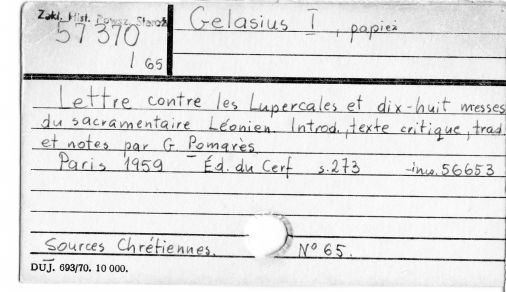 Zakł. Hist. Powsz. Staroż.
57 370
1 65
Gelasius I, papież
Lettre contre les Lupercales et dix-huit messes
du sacramentaire Léonien. Introd., texte critique, trad.
et notes par G. Pomarès.
Paris 1959 Éd. du Cerf s. 273 inw. 56653
Sources Chrétiennes. Nº 65.
DUJ. 693/70. 10 000.